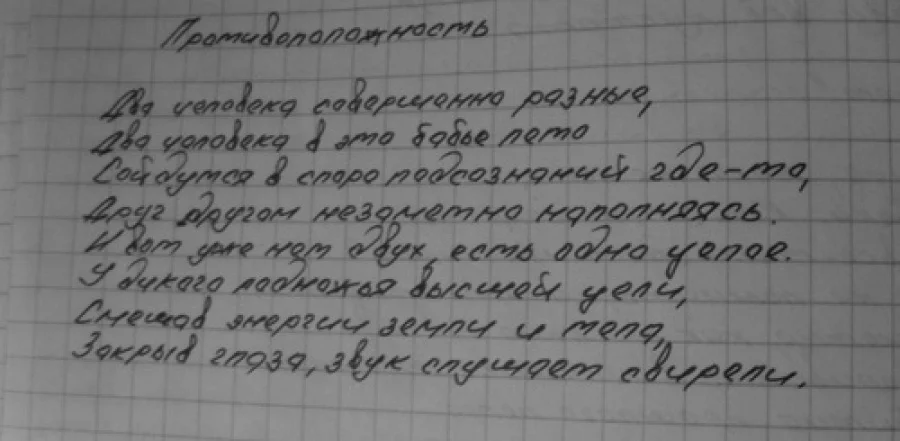 Противоположность
Два человека совершенно разные,
Два человека в это бабье лето
Сойдутся в споре подсознаний где-то,
Друг другом незаметно наполняясь.
И вот уже нет двух, есть одно целое.
У дикого подножья высшей цели,
Смешав энергии земли и тела,
Закрыв глаза, звук слушает свирели.